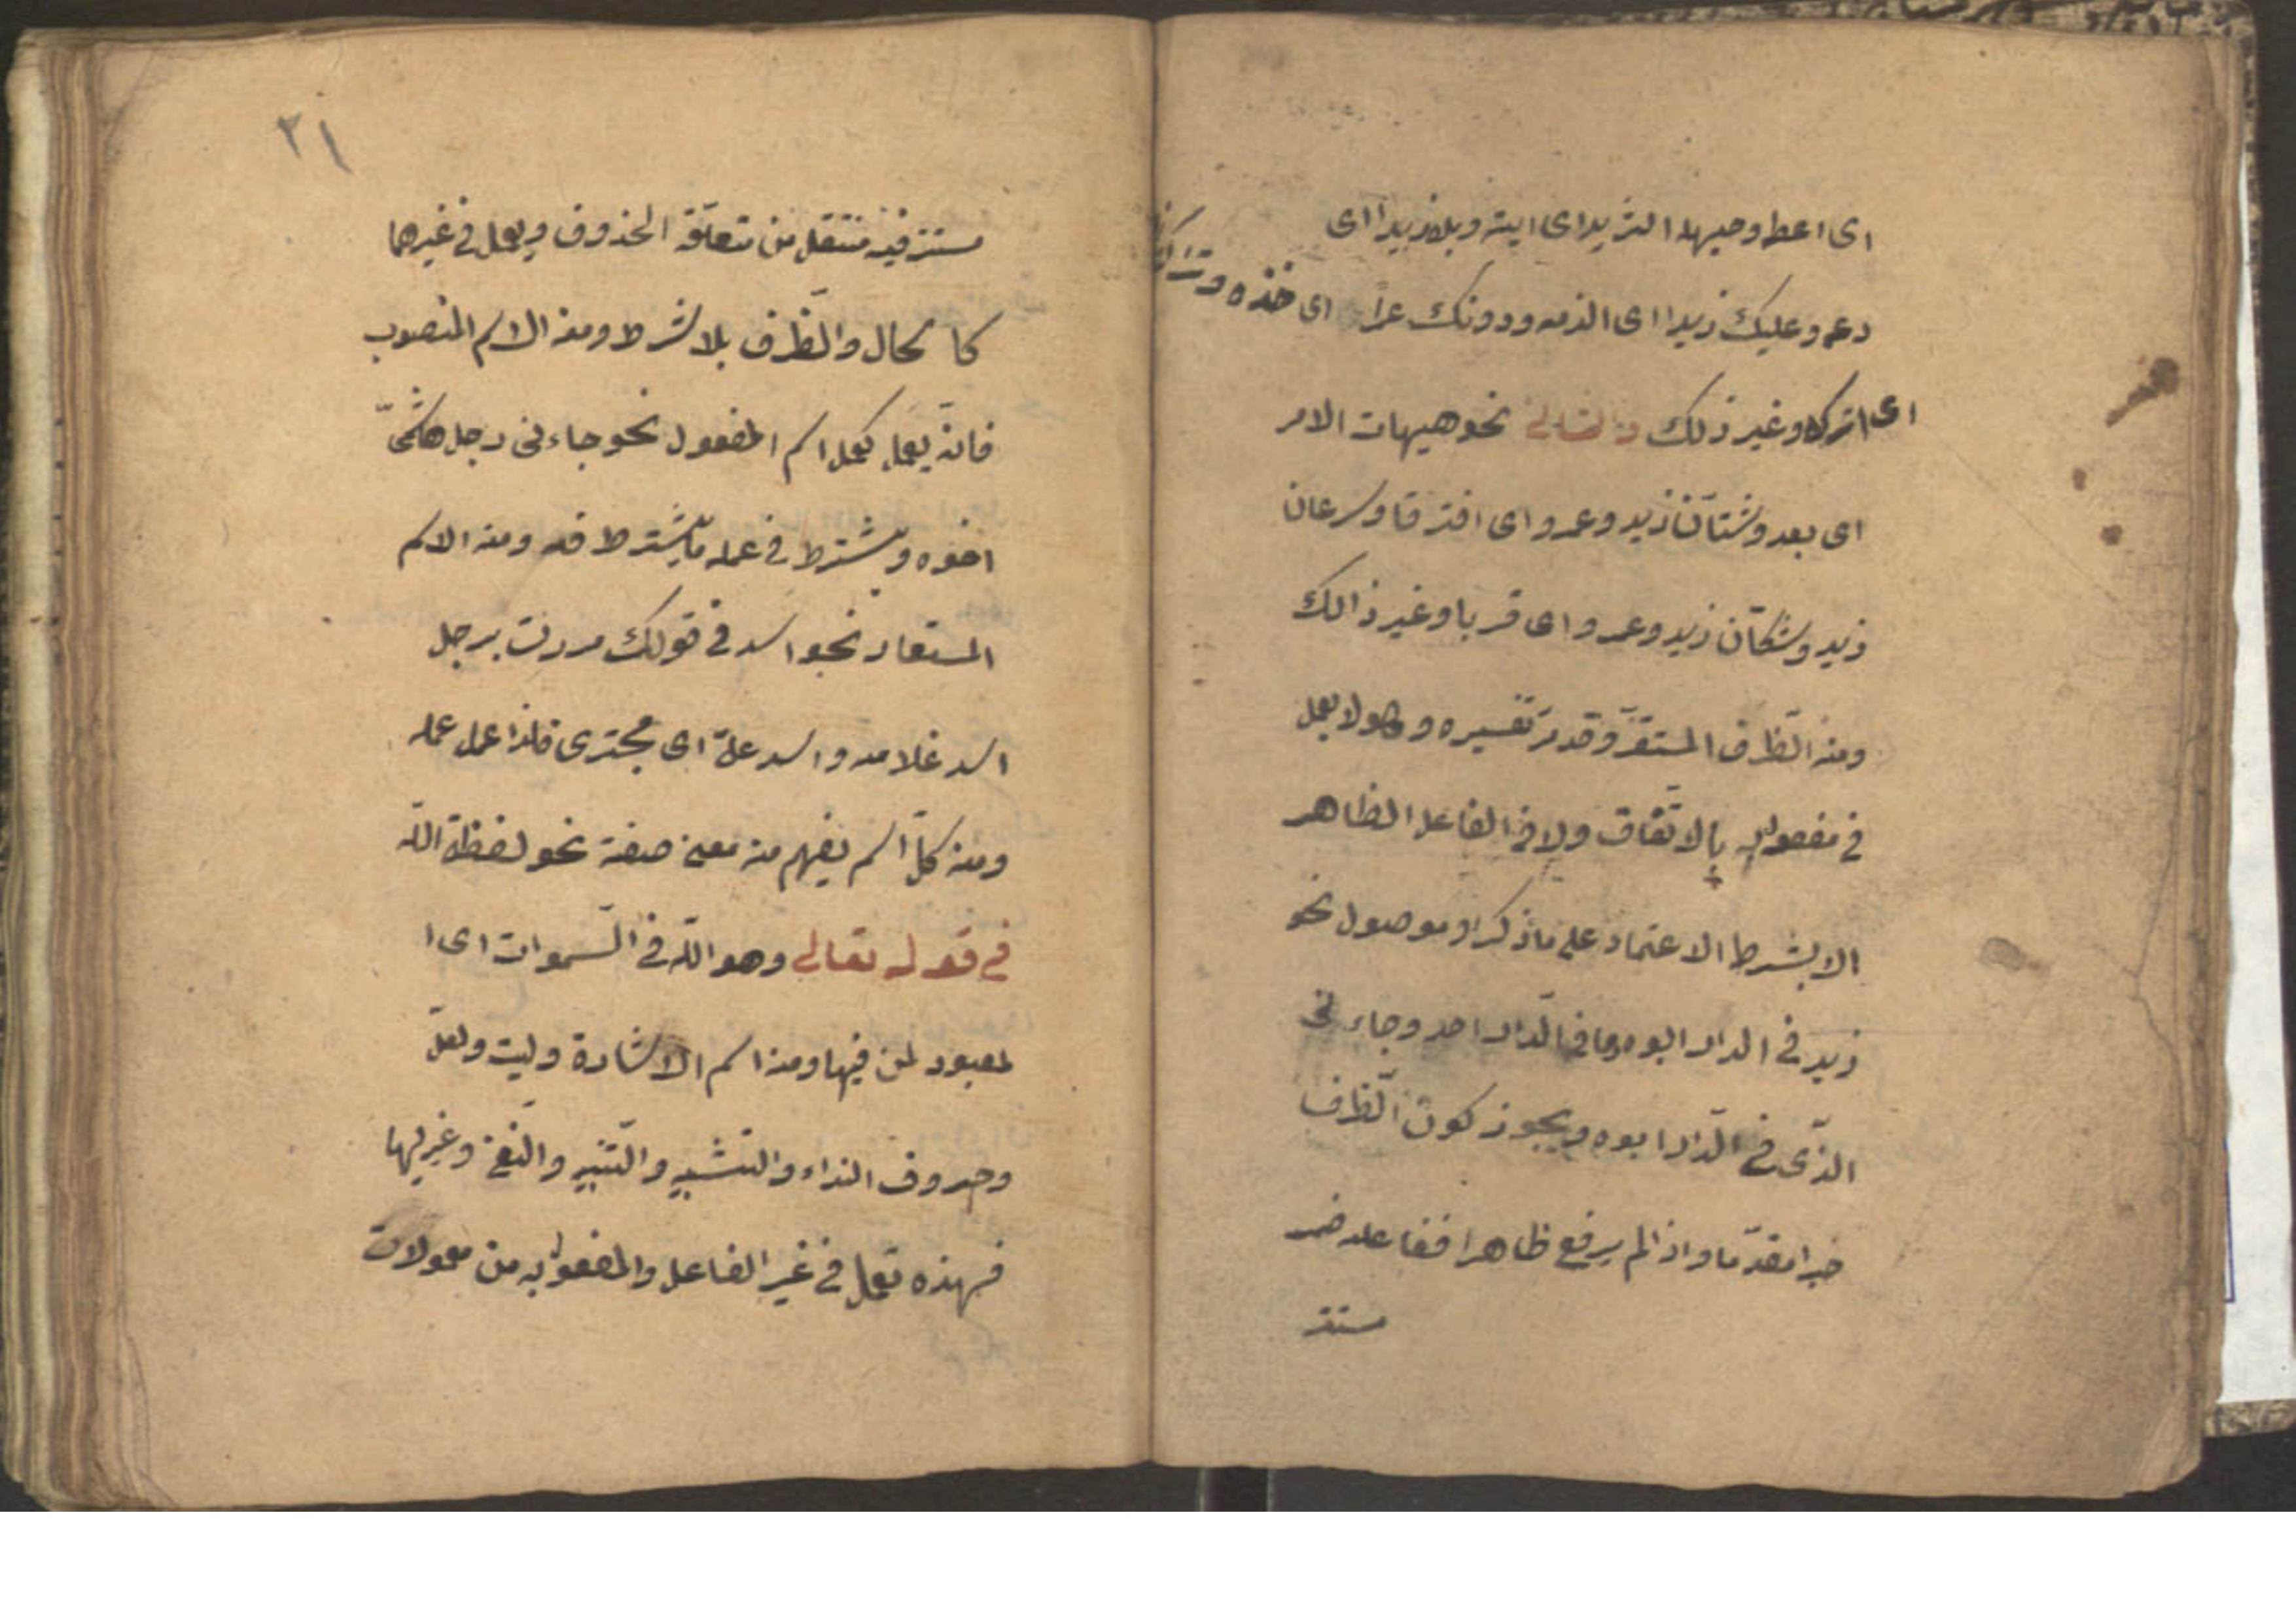 اى اعط وحيهل الثريد اى ايته وبله زيدا اى
دعه وعليك زيدا اى الزمه ودونك عمرا اى خذه وتراك
اى اتركه وغير ذلك والثانى نحو هيهات الامر
اى بعد وشتان زيد وعمرو اى افترقا وسرعان
زيد وشكان زيد وعمرو اى قربا وغير ذالك
ومنه الظّرف المستقرّ وقد مرّ تفسيره وهو لا يعمل
فى مفعول به بالاتّفاق ولا فى الفاعل الظاهر
الا بشرط الاعتماد على ما ذكر او موصول نحو
زيد فى الدار ابوه وما فى الدّار احد وجاءنى
الذّى فى الدّار ابوه ويجوز كون الظّرف
خبرا مقدّما واذا لم يرفع ظاهرا ففاعله ضمير
مستتر
٢١
مستتر فيه منتقل من متعلّقه المحذوف ويعمل فى غيرهما
كالحال والظّرف بلا شرط ومنه الاسم المنصوب
فانّه يعمل كعمل اسم المفعول نحو جاءنى رجل هاشمىّ
اخوه ويشترط فى عمله ما يشترط فيه ومنه الاسم
المستعار نحو اسد فى قولك مررت برجل
اسد غلامه واسد علىّ اى مجترى فلذا عمل عمله
ومنه كلّ اسم يفهم منه معنى صفة نحو لفظة اللّه
فى قوله تعالى وهو اللّه فى السّموات اى ا
لمعبود لمن فيها ومنه اسم الاشارة وليت ولعلّ
وحروف النداء والتشبيه والتّنبيه والنّفى وغيرها
فهذه تعمل فى غير الفاعل والمفعول به من معمولات